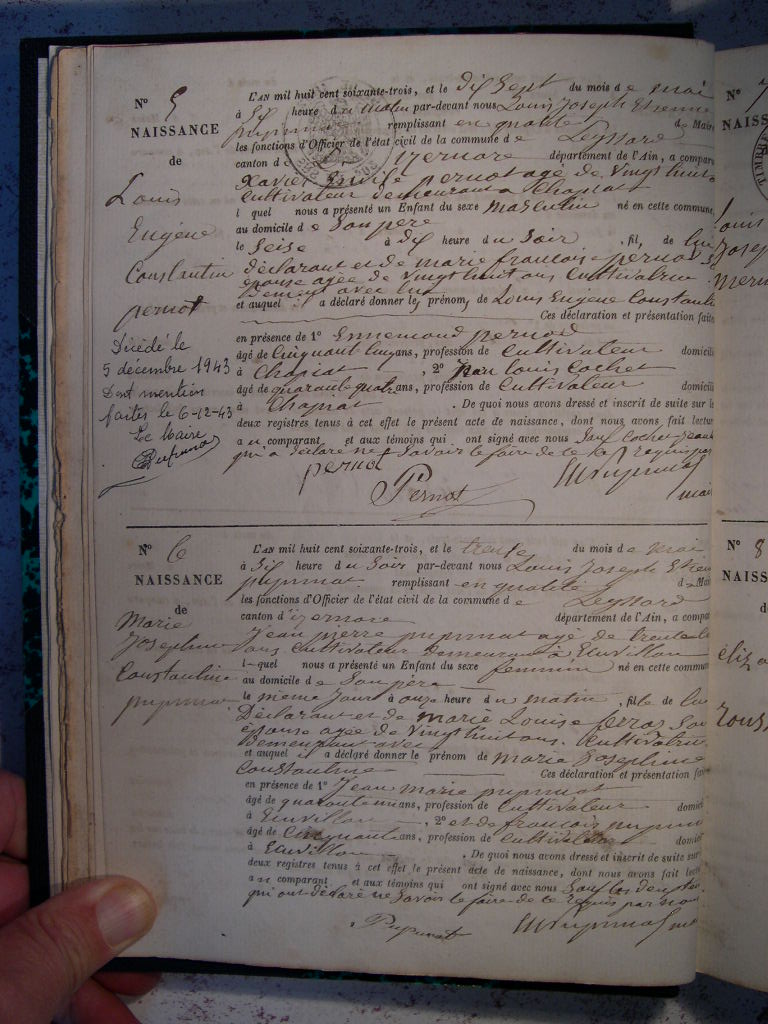 N° 5
NAISSANCE
de
Louis
Eugène
Constantin
pernot
Décédé le
5 décembre 1943
Dont mention
faites le 6-12-43
Le Maire
L'AN mil huit cent soixante-trois, et le dix sept du mois de mai
à Six heure du matin par-devant nous Louis Joseph Etienne
remplissant en qualité de Maire
les fonctions d'Officier de l'état civil de la commune de Leyssard
canton d izernore département de l'Ain, a comparu
Xavier pernot agé de vingt huit
Cultivateur demeurant a Chapiat
l quel nous a présenté un Enfant du sexe Masculin né en cette commune
au domicile de Son pere
le Seise à dix heure du Soir , fil, de lui
déclarant et de marie francoise pernod S
épouse agée de vingt huit ans Cultivatrice
Demeurt avec lui
et auquel il a déclaré donner les prénoms de Louis Eugène Constantin
Ces déclaration et présentation faites
en présence de 1° Ennemond pernod
âgé de Cinquant ans, profession de Cultivateur domicilié
à Chapiat , 2° Jean Louis Cochet
âgé de quarante quatre ans, profession de Cultivateur domicilié
à Chapiat . De quoi nous avons dressé et inscrit de suite sur les
deux registres tenus à cet effet le présent acte de naissance, dont nous avons fait lecture
au comparant et aux témoins qui ont signé avec nous Sauf Cochet Jean
qui a déclaré ne Savoir le faire de ce Requis par
pernot
Pernot
N° 6
NAISSANCE
de
Marie
Josephine
Constantine
pupunat
L'AN mil huit cent soixante-trois, et le trente du mois de Mai
à Six heure du Soir par-devant nous Louis Joseph Etien
pupunat remplissant en qualité de Mai
les fonctions d'Officier de l'état civil de la commune de Leyssard
canton d'izernore département de l'Ain, a compa
Jean pierre pupunat agé de trente
ans Cultivateur Demeurant à
l-quel nous a présenté un Enfant du sexe feminin né en cette commu
au domicile de Son père
le même Jour à onze heure du matin , fille de lui
Déclarant et de marie Louise Son
épouse agée de vingt huit ans. Cultivatrice
Demeurant avec
et auquel il a déclaré donner le prénom de Marie Josephine
Constantine Ces déclaration et présentation fai
en présence de 1° Jean marie pupunat
âgé de quarante ans, profession de Cultivateur domici
à , 2° et de francois pupunat
âgé de Cinquante ans, profession de Cultivateur domici
à . De quoi nous avons dressé et inscrit de suite sur
deux registres tenus à cet effet le présent acte de naissance, dont nous avons fait lect
au comparant et aux témoins qui ont signé avec nous Sauf les deux
qui ont déclaré ne Savoir le faire de ce Requis par nous
Pupunat
N°
NAISS
TIMBRE
Louis
Josep
N° 8
NAISS